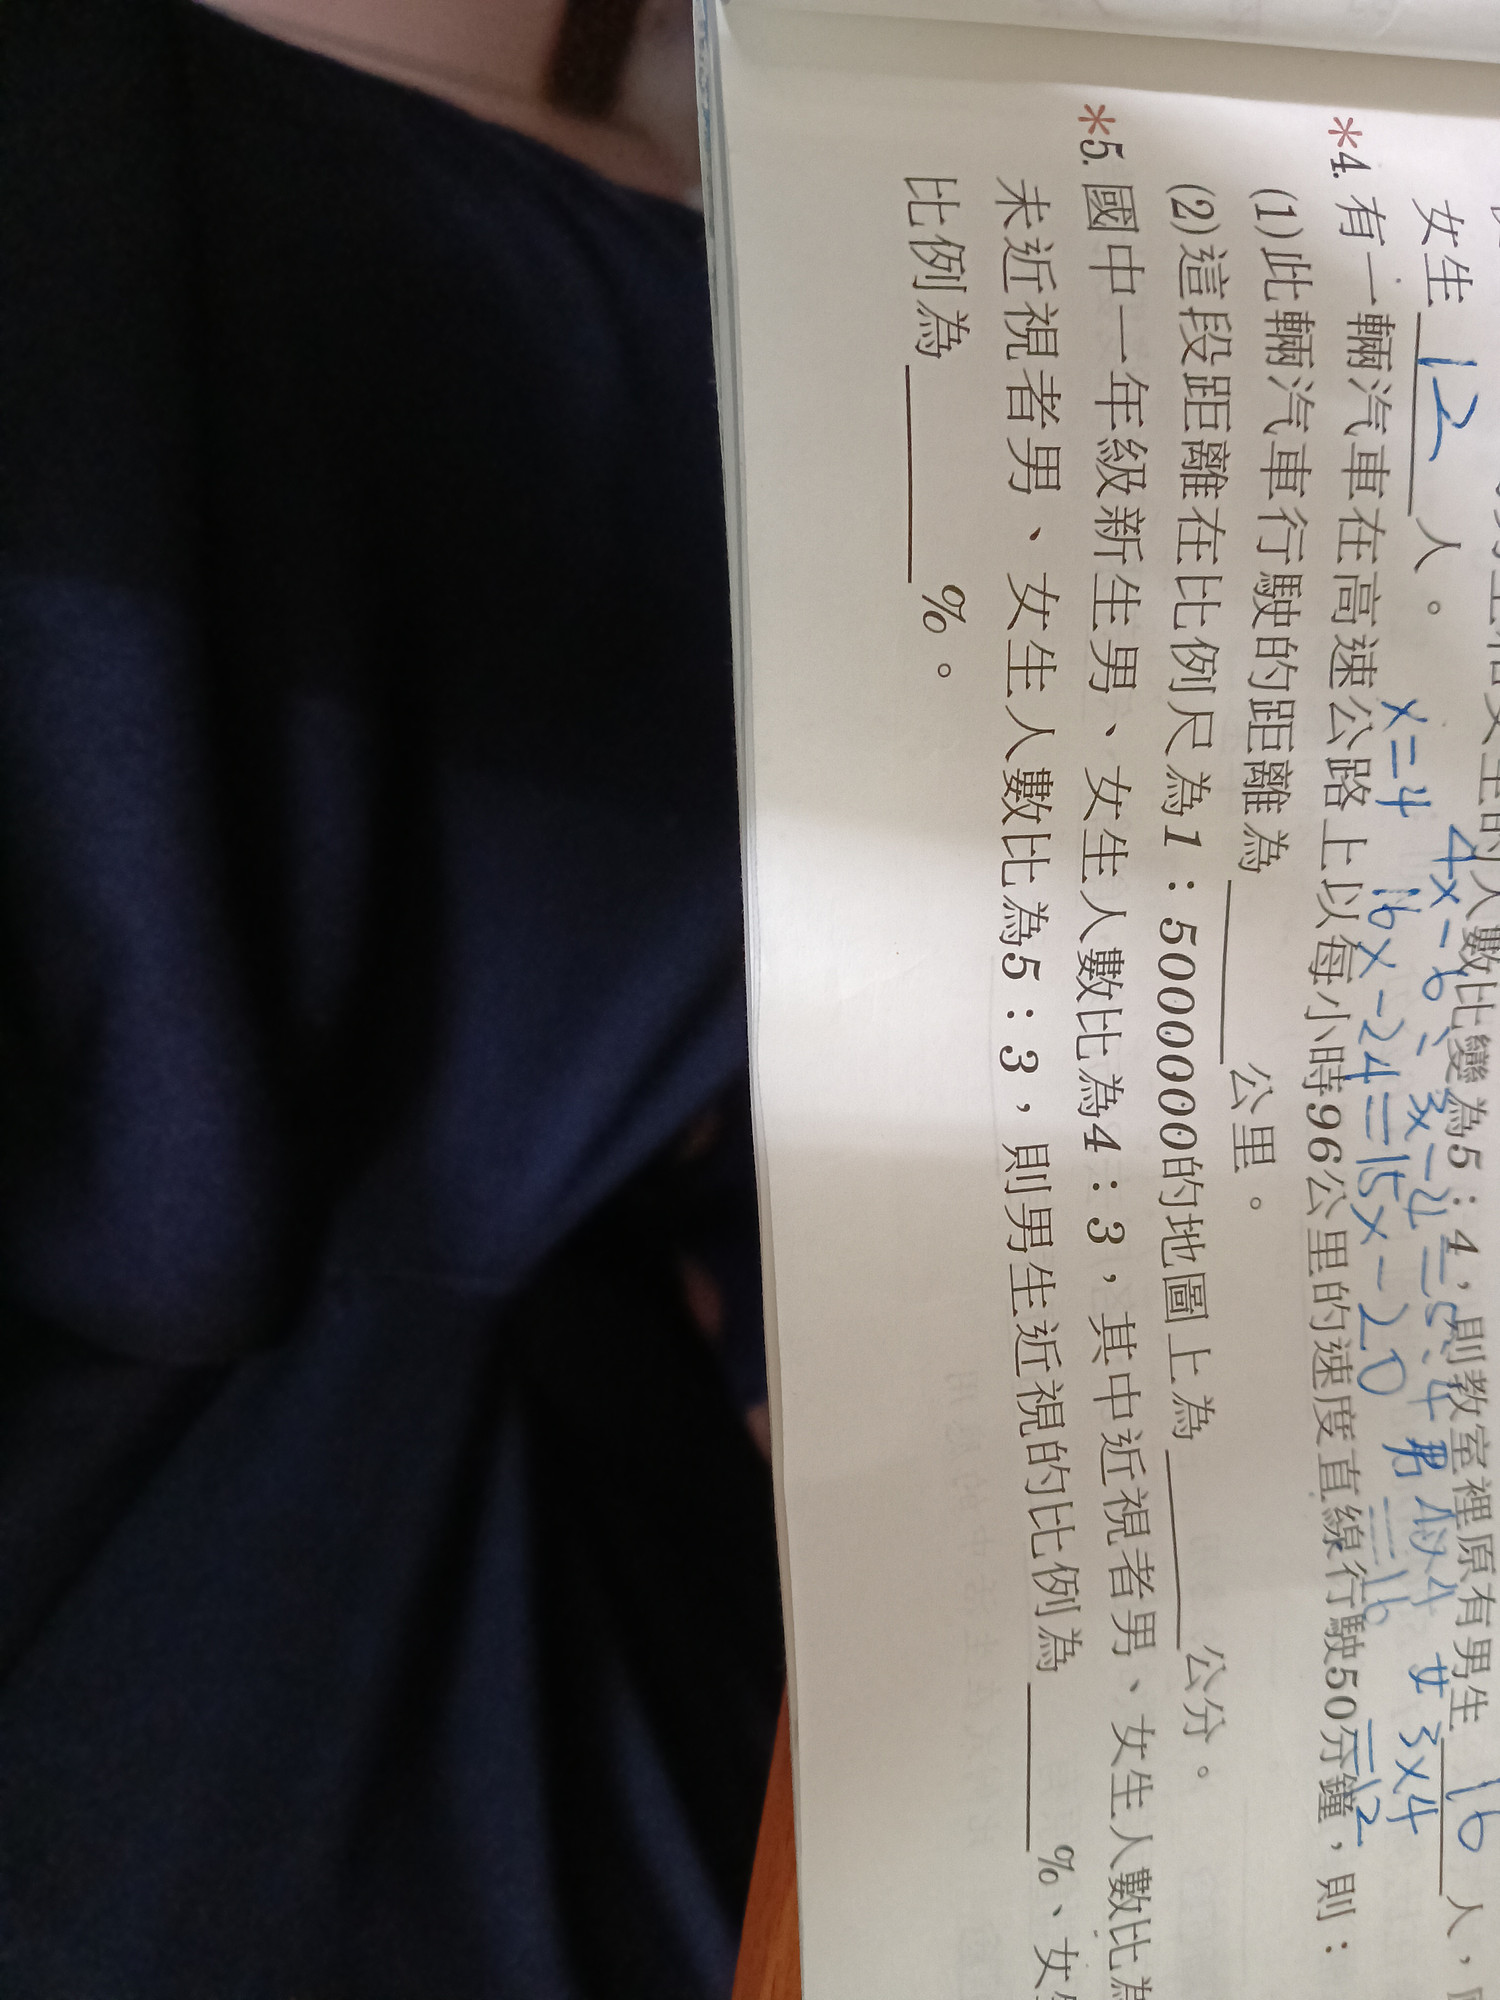 人數比變為5:4,則教室裡原有男生 16 人,
4x-6
女生 12 人。
x=4 16x-24=15x-20
女 3x4
=12
*4. 有一輛汽車在高速公路上以每小時96公里的速度直線行駛50分鐘,則:
(1)此輛汽車行駛的距離為____公里。
(2)這段距離在比例尺為1:5000000的地圖上為____公分。
*5. 國中一年級新生男、女生人數比為4:3,其中近視者男、女生人數比為
未近視者男、女生人數比為5:3,則男生近視的比例為____%、女
比例為____%。